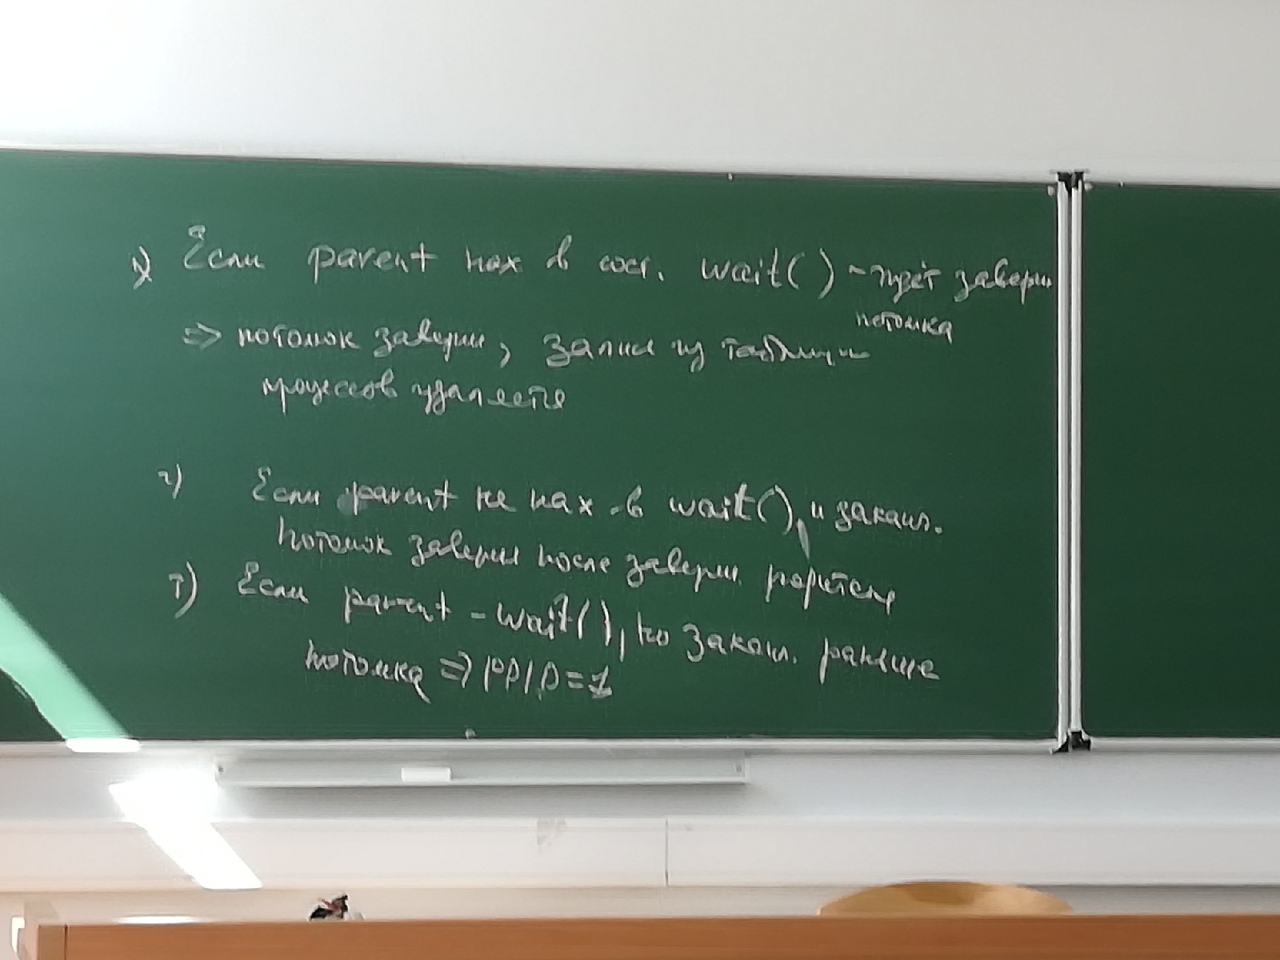 1) Если parent нах в сост. wait() - ждёт заверш
потомка
=> потомок заверш, запись из таблицы
процессов удаляется
2) Если parent не нах в wait(), и законч.
потомок заверш после заверш. родителя
3) Если parent - wait(), но законч. раньше
потомка => PPID=1